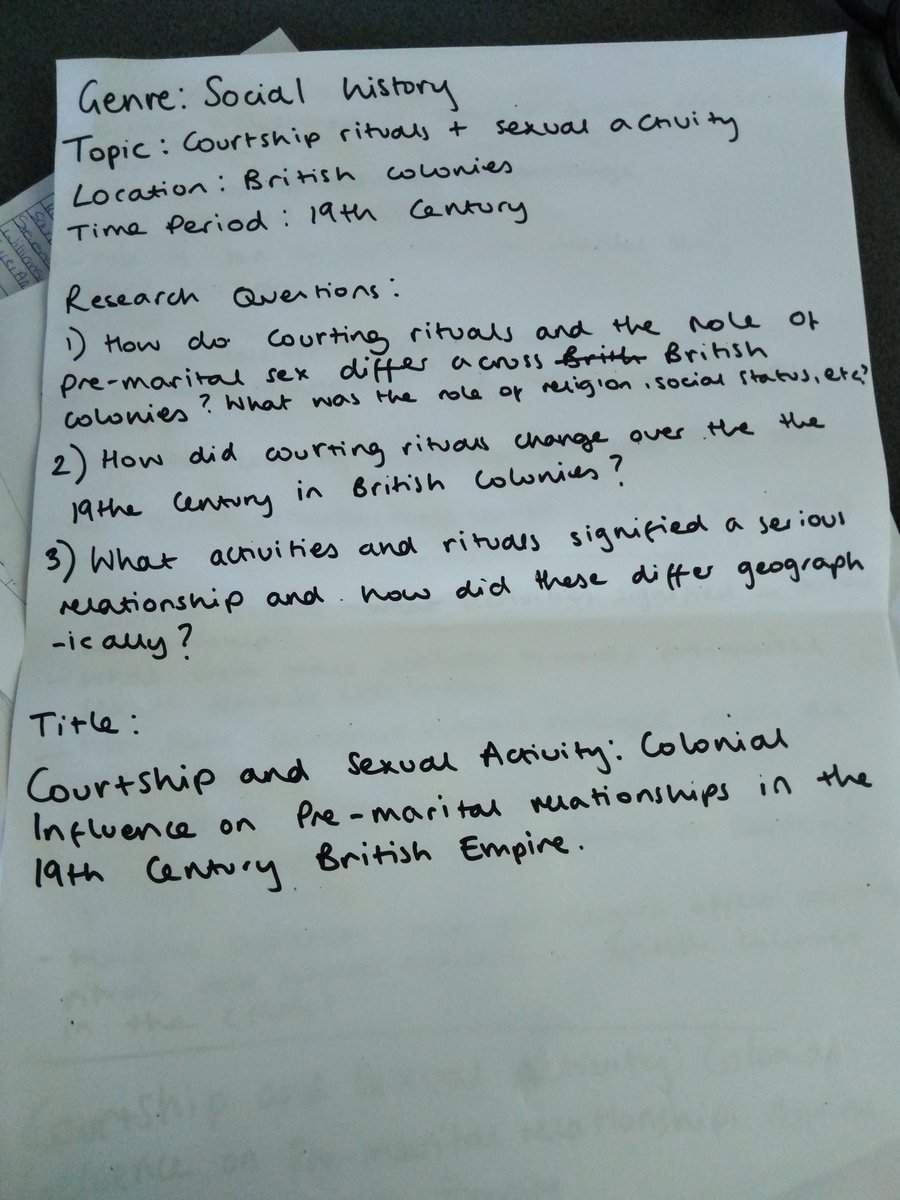 Genre: Social history
Topic: Courtship rituals + sexual activity
Location: British colonies
Time Period: 19th Century
Research Questions:
1) How do courting rituals and the role of
pre-marital sex differ across British
colonies? What was the role of religion, social status, etc?
2) How did courting rituals change over the the
19the Century in British Colonies?
3) What activities and rituals signified a serious
relationship and how did these differ geograph
-ically?
Title:
Courtship and Sexual Activity: Colonial
Influence on Pre-marital relationships in the
19th Century British Empire.